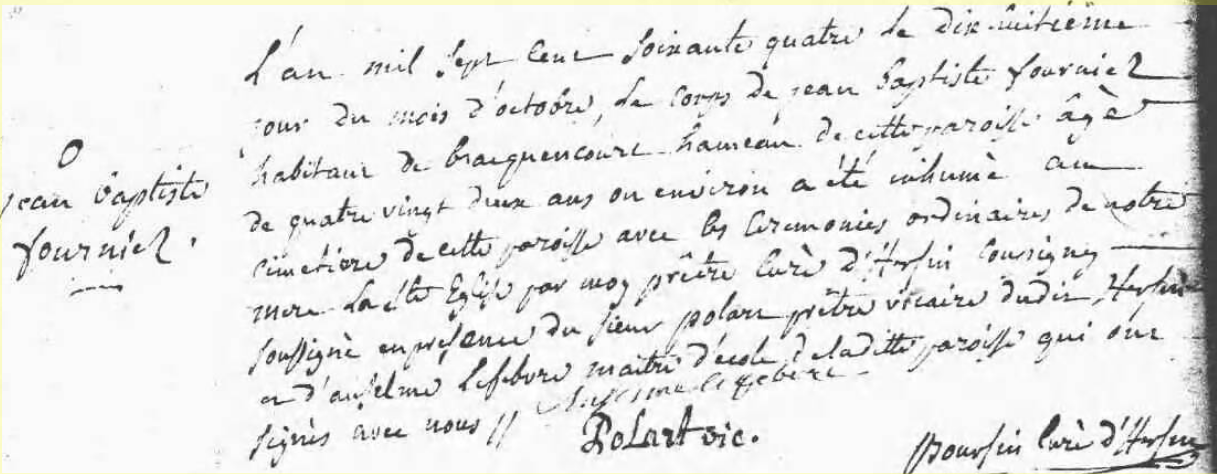 O
jean baptiste
fournier.
L'an mil sept cent soixante quatre le dix huitième
jour du mois d'octobre, le corps de jean baptiste fournier
habitant de bracquencourt hameau de cette paroisse âgè
de quatre vingt deux ans ou environ a été inhumè au
cimetiere de cette paroisse avec les Ceremonies ordinaires de notre
mere La Ste Eglise par moy prêtre Curè d'Hersin Coussigny
soussignè en presence du sieur polart prêtre vicaire dudit Hersin
et d'anselme Lefebvre maitre d'école de laditte paroisse qui ont
signès avec nous //
Anselme lefebvre
Polart vic.
Boursin Curè d'Hersin